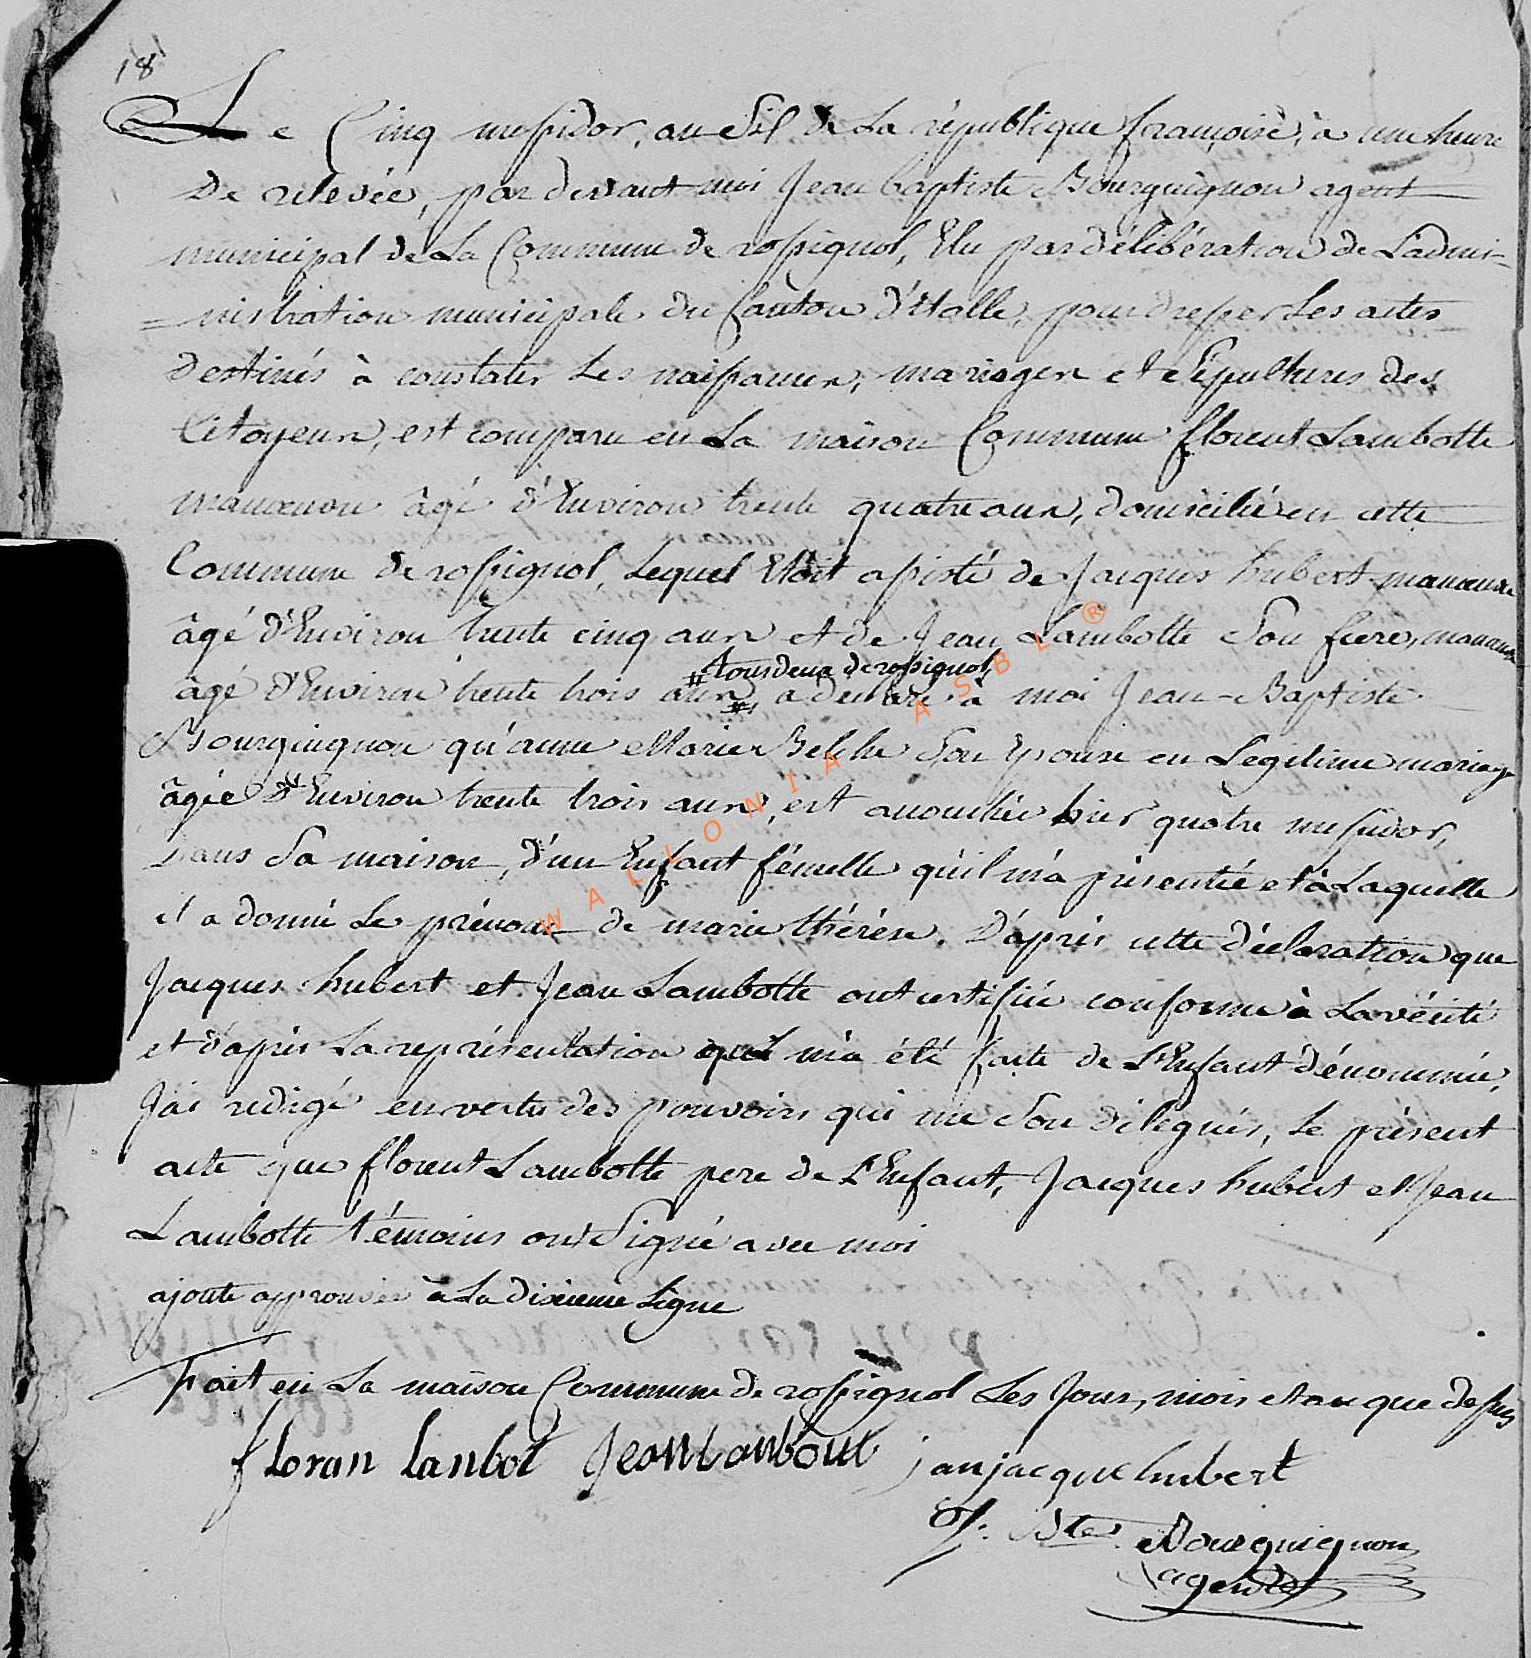 18
Le Cinq messidor, an Six de La république françoise, à une heure
De relevée, pardevant moi Jean baptiste Bourguignon agent
municipal de La Commune de rossignol, Elu par délibération de L'admi-
=nistration municipale du Canton d'Etalle, pour dresser Les actes
destinés à constater Les naissances, mariages et Sépultures des
Citoyens, est comparu en La maison Commune florent Lambotte
manœuvre âgé d'Environ trente quatre ans, domicilié en cette
Commune de rossignol, Lequel Etoit assisté de Jacques hubert manœuvre
âgé d'Environ trente cinq ans et de Jean Lambotte Son frere, manœuvre
# tous deux de rossignol,
âgé d'Environ trente trois ans #, a déclaré à moi Jean-Baptiste
Bourguignon qu'anne Marie Belche Son Epouse en Legitime mariage
âgée d'Environ trente trois ans, est accouchée hier quatre messidor,
Dans Sa maison, d'un Enfant fémelle qu'il m'a présentée et à Laquelle
il a donné Le prénom de marie thérése. D'après cette déclaration que
Jacques hubert et Jean Lambotte ont certifiée conforme à La vérité
et d'après La représentation qui m'a été faite de L'Enfant dénommée,
J'ai redigé en vertu des pouvoirs qui me Son délégués, Le présent
acte que florent Lambotte pere de L'Enfant, Jacques hubert et Jean
Lambotte témoins ont Signé avec moi
ajoute approuvée à La dixieme Ligne
Fait en La maison Commune de rossignol Les Jour, mois et an que dessus
floran Lanbot Jean Lanbout janjacque hubert
J: Bte Bourguignon
agent
WALLONIA ASBL ®